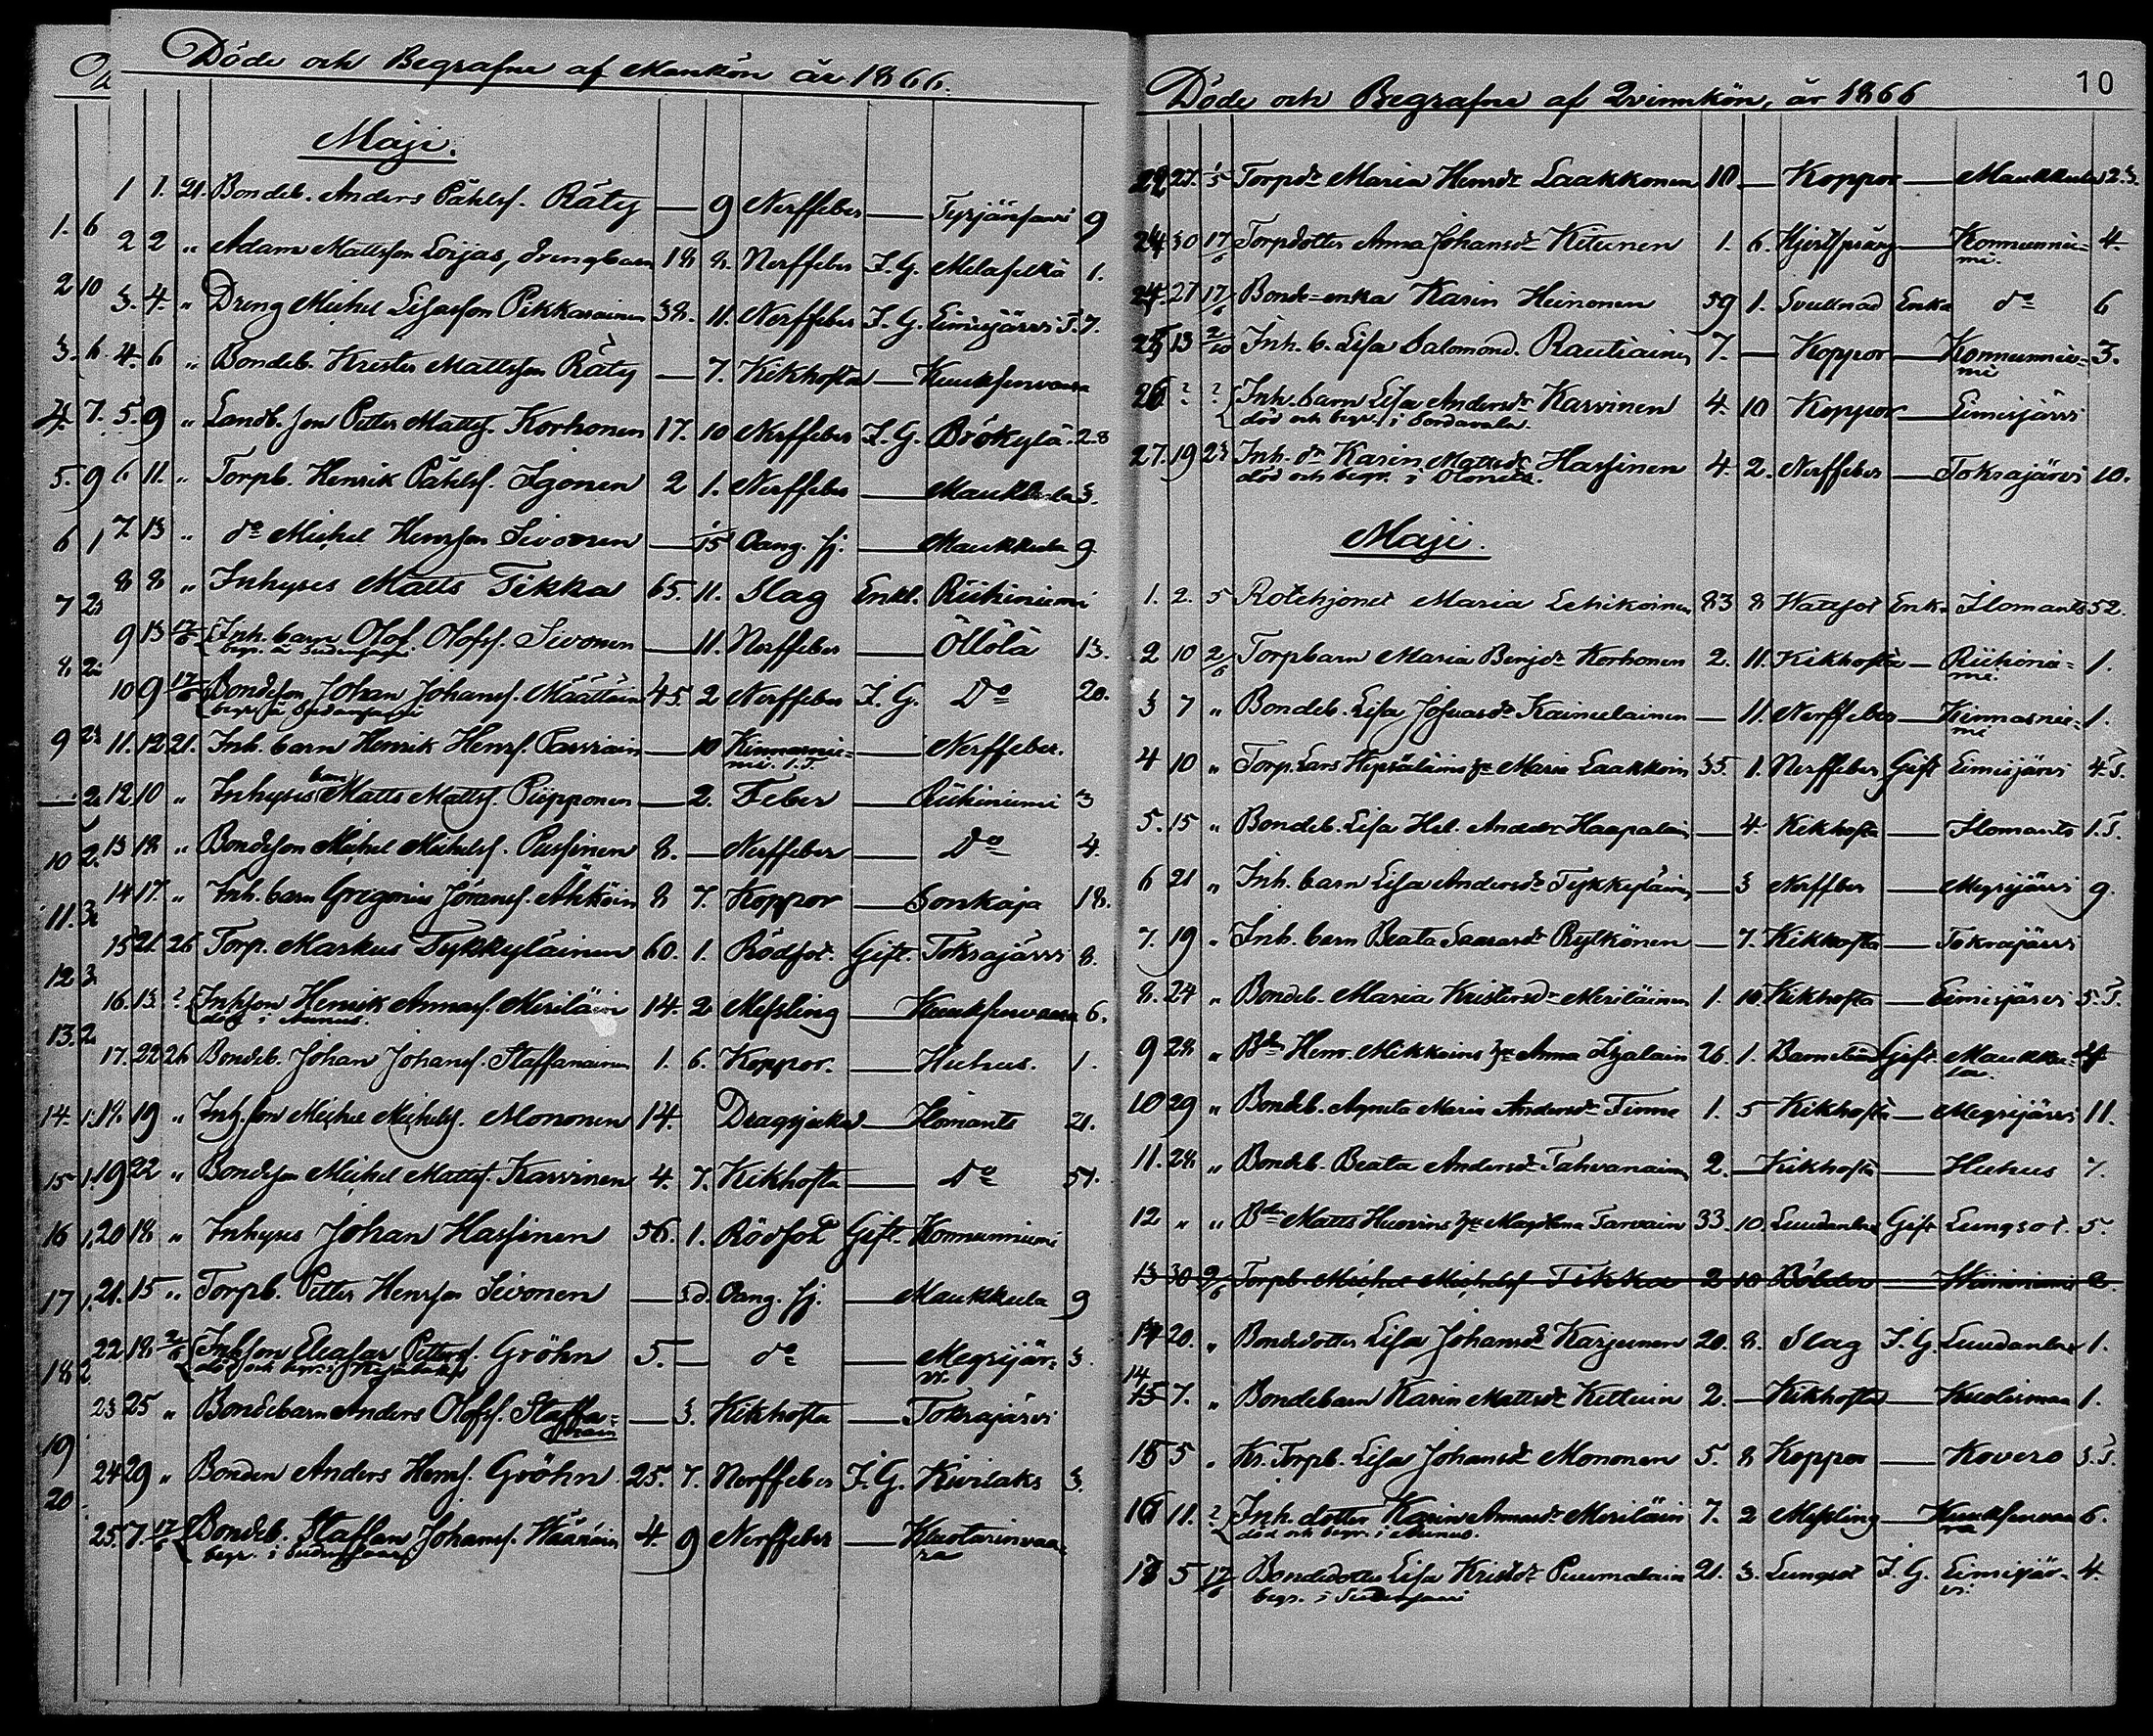 Döde och Begrafne af Mankön år 1866.
Maji.
1 1. 21. Bondeb. Anders Påhlsf. Räty — 9 Nerffeber — Tyrjänsaari 9
2 2 " Adam Mattsson Loijas, drengbarn 18 8. Nerffeber I. G. Melaselkä 1.
3. 4. " Dreng Michel Lisasson Pikkarainen 38. 11. Nerffeber I. G. Eimisjärvi T. 7.
4. 6 " Bondeb. Krister Mattsson Räty — 7. Kikhosta — Kuuksenvaara
5. 9 " Landb. son Petter Mattsf. Korhonen 17. 10 Nerffeber I. G. Brökylä 28
6 11. " Torpb. Henrik Påhlsf. Igonen 2 1. Nerffeber — Maukkula 3.
7. 13 " do Michel Henrsson Sivonen — 15 Oang. sj. — Maukkula 9
8 8 " Inhyses Matts Tikka 65. 11. Slag Enkl. Riihiniemi
9 13 17/6 Inh. barn Olof Olofsf. Sivonen — 11. Nerffeber — Öllölä 13.
10 9 17/6 Bondeson Johan Johansf. Määttäin 45 2 Nerffeber I. G. Do 20.
11. 12 21. Inh. barn Henrik Henrsf. Parviain — 10 Kinnasnie= — Nerffeber.
mi. 1. T.
12 10 " Inhyses barn Matts Mattsf. Piipponen — 2. Feber — Riihiniemi 3
13 18 " Bondeson Michel Michelsf. Pussinen 8. — Nerffeber — Do 4.
14 17. " Inh. barn Gregorius Göransf. Ahköin 8 7. Koppor — Sonkaja 18.
15 21. 26 Torp. Markus Tykkyläinen 60. 1. Rödsot. Gift. Tokrajärvi 8.
16. 13 ? Inhson Henrik Annasf. Meriläin 14. 2 Messling — Kuuksenvaara 6.
död i Aunus.
17. 22 26 Bondeb. Johan Johansf. Staffanainen 1. 6. Koppor. — Huhus. 1.
18. 19 " Inh. son Michel Michelsf. Mononen 14. Dragsjuka — Ilomants 21.
19 22 " Bondeson Michel Mattsf. Karvinen 4. 7. Kikhosta — Do 57.
20 18 " Inhyses Johan Hassinen 56. 1. Rödsot Gift. Konnunniemi
21. 15 " Torpb. Petter Henrsson Sivonen — 3d. Oang. sj. — Maukkula 9
22 18 2/6 Inhson Eleasar Pettersf. Gröhn 5. — do — Megrijär= 3.
död och begr. i vi.
23 25 " Bondebarn Anders Olofsf. Staffa= — 3. Kikhosta — Tokrajärvi
nain
24 29 " Bonden Anders Henrsf. Gröhn 25. 7. Nerffeber I. G. Kivilaks 3.
25. 7. 17/6 Bondeb. Staffan Johansf. Väänäin 4. 9 Nerffeber — Kuolarinvaa=
begr. i ra
Döde och Begrafne af Qvinnkön, år 1866
10
22 27. 1/5 Torpdr Maria Henrsdr Laakkonen 10 — Koppor — Maukkula 23.
24 30 17/6 Torpdotter Anna Johansdr Kitunen 1. 6. Hjertsprång — Konnunnie= 4.
mi.
24. 27 17/6 Bonde=enka Karin Heinonen 59 1. Svullnad Enka do 6
25 13 2/10 Inh. b. Lisa Salomond. Rautiainen 7. — Koppor — Konnunnie= 3.
mi
26 ? ? Inh. barn Lisa Andersdr Karvinen 4. 10 Koppor — Eimisjärvi
död och begr. i Sordavala.
27. 19 23 Inh. dr Karin Mattsdr Hassinen 4. 2. Nerffeber — Tokrajärvi 10.
död och begr. i Olonets.
Maji.
1. 2. 5 Rotehjonet Maria Lehikoinen 83 8 Wattsot Enka Ilomants 52.
2 10 2/6 Torpbarn Maria Benjdr Korhonen 2. 11. Kikhosta — Riihinie= 1.
mi.
3 7 " Bondeb. Lisa Josuasdr Kaimulainen — 11. Nerffeber — Kinnasnie= 1.
mi
4 10 " Torp. Lars Hypääläins hr Maria Laakkoin 35. 1. Nerffeber Gift Eimisjärvi 4. T.
5. 15 " Bondeb. Lisa Hel. Andersdr Haapalain — 4. Kikhosta — Ilomants 1. T.
6 21 " Inh. barn Lisa Andersdr Tykkyläinen — 3 Nerffber — Megrijärvi 9.
7. 19 " Inh. barn Beata Saarasdr Rytkönen — 7. Kikhosta — Tokrajärvi
8. 24 " Bondeb. Maria Kristersdr Meriläinen 1. 10 Kikhosta — Eimisjärvi 5. T.
9 28 " Bdn Henr. Mikkoins hr Anna Itzalain 26. 1. Barnsbörd Gift. Maukku=
la.
10 29 " Bondeb. Agneta Maria Andersdr Finne 1. 5 Kikhosta — Megrijärvi 11.
11. 28 " Bondeb. Beata Andersdr Tahvanain 2. — Kikhosta — Huhus 7.
12 " " Bdn Matts Huovins hr Magdlena Tarvain 33. 10 Luudanlax Gift Lungsot. 5.
13 30 2/6 Torpb. Michel Michelsf Tikka 2 10 Bölder — 2.
14 20. " Bondedotter Lisa Johansdr Karjunen 20. 8. Slag I. G. Luudanlax 1.
14
15 7. " Bondebarn Karin Mattsdr Kettuin 2. — Kikhosta — Kuolismaa 1.
15 5 " Kr. Torpb. Lisa Johansdr Mononen 5. 8 Koppor — Kovero 3. T.
16 11. ? Inh. dotter Karin Annasdr Meriläin 7. 2 Messling — Kuuksenvaa 6.
död och begr. i Aunus. ra
18 5 17/6 Bondedotter Lisa Kristsdr Puumalain 21. 3. Lungsot I. G. Eimisjär= 4.
begr. i vi